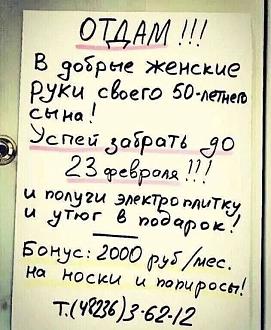 ОТДАМ!!!
В добрые женские
руки своего 50-летнего
сына!
Успей забрать до
23 февраля!!!
и получи электроплитку
и утюг в подарок!
Бонус: 2000 руб/мес.
на носки и попиросы!
Т.(48236)3-62-12